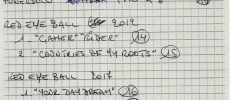 RED EYE BALL 2012
1 "GAMER" RIDER" 14
2 "COUNTRIES OF MY ROOTS" 15
RED EYE BALL 2017
1 "YOUR DAYDREAM" 16